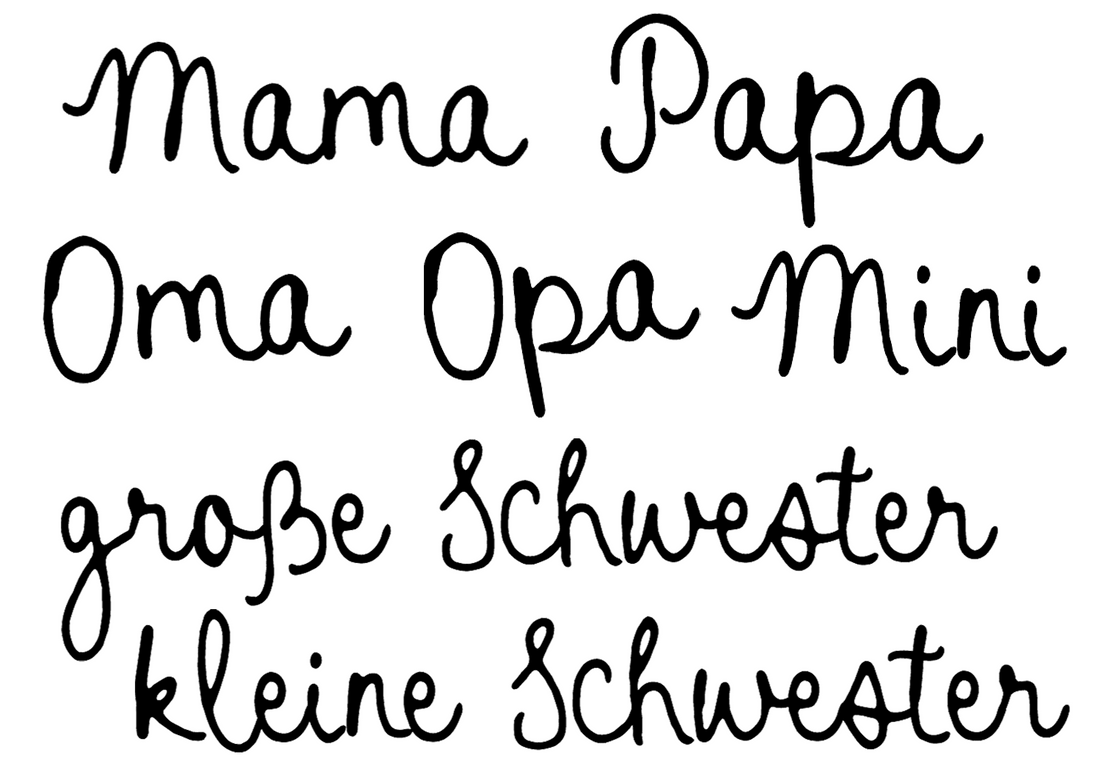 Mama Papa
Oma Opa Mini
große Schwester
kleine Schwester